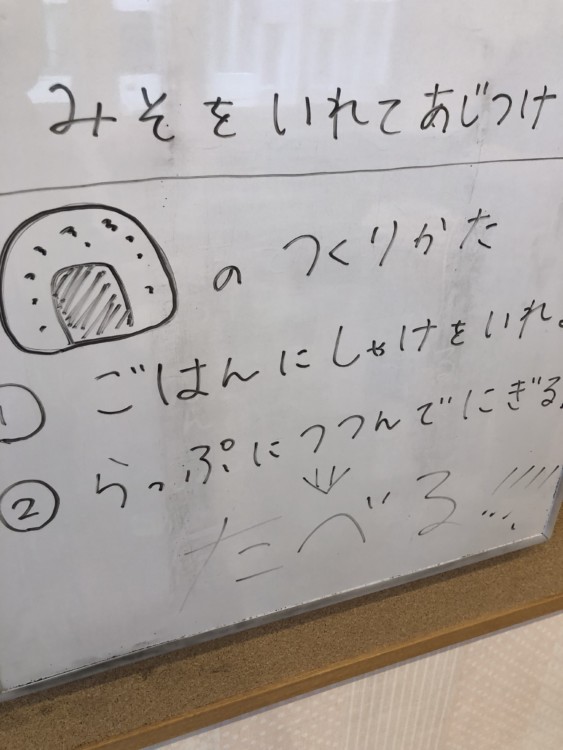 みそをいれてあじつけ
の つくりかた
① ごはんにしゃけをいれ。
② らっぷにつつんでにぎる。
↓
たべる!!!